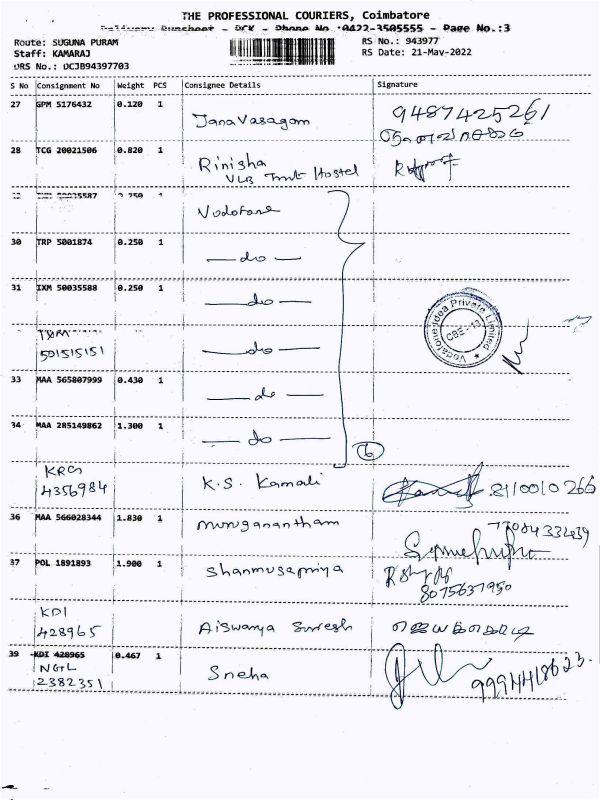 THE PROFESSIONAL COURIERS, Coimbatore
Delivery Runsheet - PCK - Phone No :0422-3505555 - Page No.:3
Route: SUGUNA PURAM
Staff: KAMARAJ
DRS No.: DCJB94397703
RS No.: 943977
RS Date: 21-May-2022
S No Consignment No Weight PCS Consignee Details Signature
27 GPM 5176432 0.120 1 Janavasagam 9487425261
28 TCG 20021506 0.820 1 Rinisha
VLB Trust Hostel
0.250 1 Vodafone
30 TRP 5001874 0.250 1 — do —
31 IXM 50035588 0.250 1 — do —
IXM
501515151 — do —
Vodafone Idea Private Limited ★
CBE-13
33 MAA 565807999 0.430 1 — do —
34 MAA 285149862 1.300 1 — do —
6
KRG
4356984 K.S. Kamali 8110010266
36 MAA 566028344 1.830 1 Muruganantham
37 POL 1891893 1.900 1 Shanmugapriya
8075637950
KDI
428965 Aiswarya Suresh
39 KDI 428965 0.467 1
NGL
2382351 Sneha 9994418623.